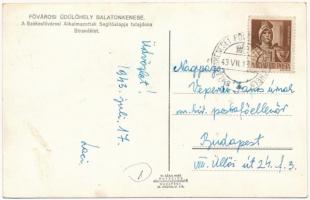 FŐVÁROSI ÜDÜLŐHELY BALATONKENESE.
A Székesfővárosi Alkalmazottak Segítőalapja tulajdona
Strandélet.
Üdvözlet!
1943. júli. 17.
Laci
Nagyságos
János úrnak
m. kir. postafőellenőr
Budapest
VIII. Üllői út 24. f. 3.
43 VII. 1